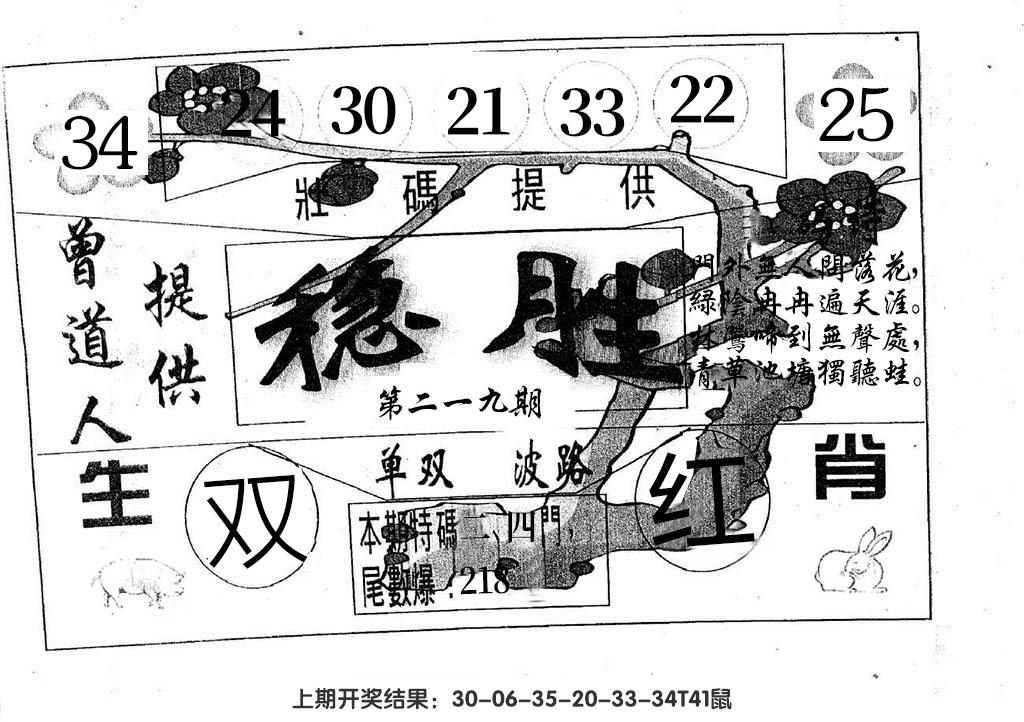 34 24 30 21 33 22 25
壯碼提供
曾道人
提供
稳胜
第二一九期
詩
門外無人聞落花，
綠陰冉冉遍天涯。
林鶯啼到無聲處，
青草池塘獨聽蛙。
单双 波路
生肖
双 红
本期特碼二、四門，
尾數爆：218
上期开奖结果：30-06-35-20-33-34T41鼠